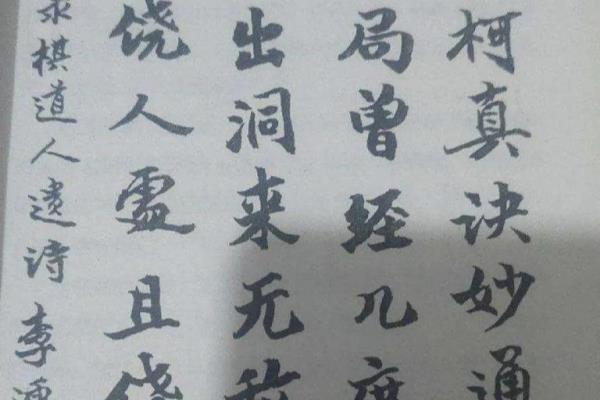 柯真诀妙通
局曾经几度
出洞来无敌
饶人處且饶
录棋道人遗诗 李